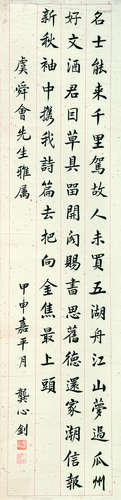 名士能來千里駕故人未買五湖舟江山夢過瓜州
好文酒君回草具留開閤賜書思舊德還家潮信報
新秋袖中携我詩篇去把向金焦最上頭
虞舜會先生雅属
甲申嘉平月 龔心釗